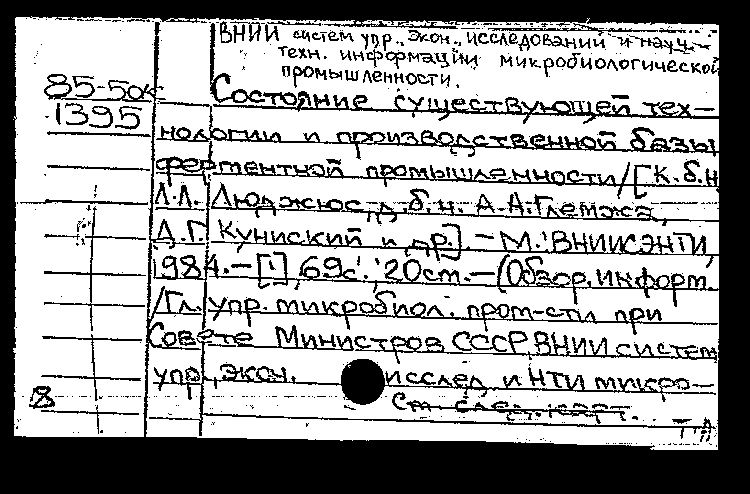 ВНИИ систем упр., экон., исследований и науч.-
техн. информации микробиологической
промышленности.
85-504
1395
Состояние существующей тех-
нологии и производственной базы
ферментной промышленности/[К.б.н.
Л.Л. Люджюс, д.б.н. А.А.Глемжа,
Д.Г. Куниский и др.]. - М.: ВНИИСЭНТИ,
1984. - [1], 69с.; 20см. - (Обзор. информ.
/Гл. упр. микробиол. пром-сти при
Совете Министров СССР, ВНИИ систем
упр., экон. исслед. и НТИ микро-
8
См. след. карт.
Т-А